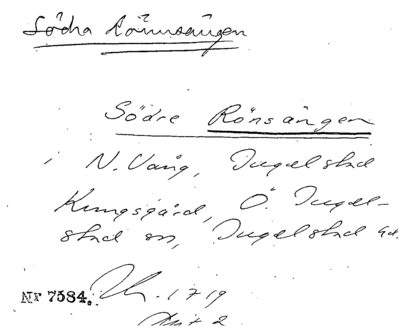 Södra Rönnsången
Södre Rönsången
i N. Vång, Ingelstad
Kungsgård, Ö. Ingel-
stad sn, Ingelstad hd.
Nr 7584. 1719